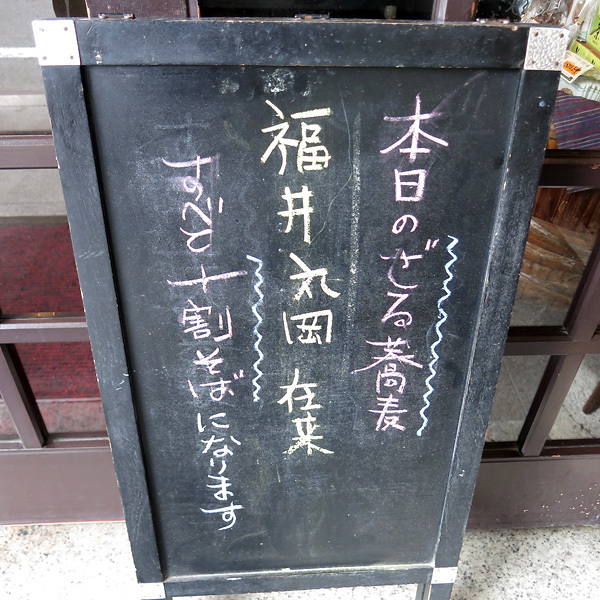 本日のざる蕎麦
福井丸岡 在来
すべて十割そばになります